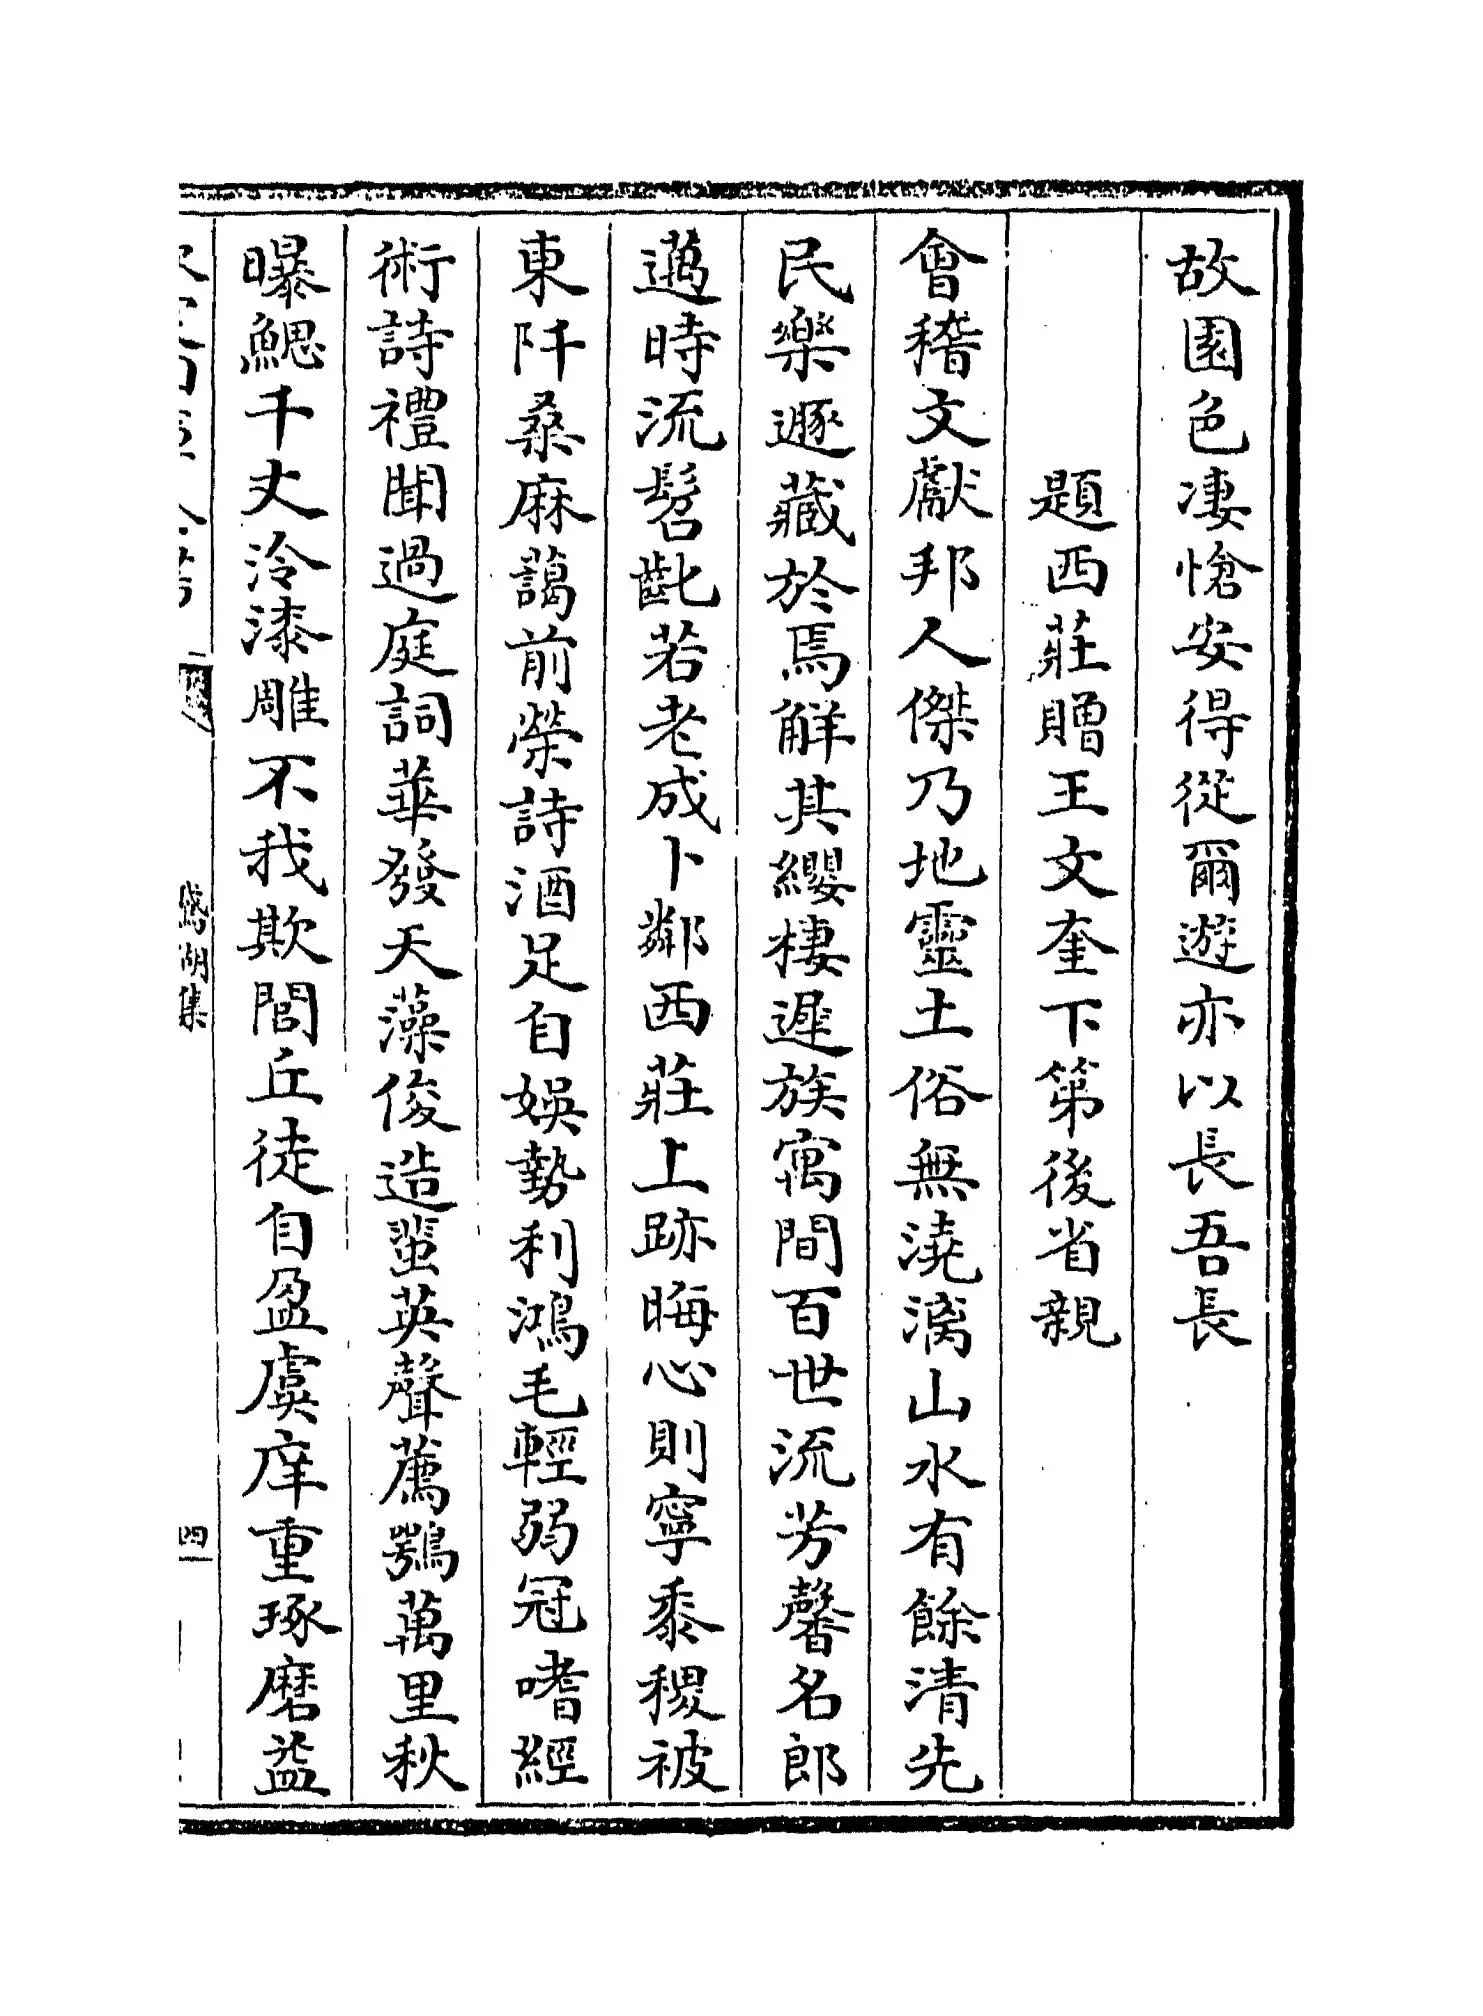 故園色凄愴安得從爾遊亦以長吾長
題西莊贈王文奎下第後省親
會稽文獻邦人傑乃地靈土俗無澆漓山水有餘清先
民樂遯藏於焉解其纓棲遲族寓間百世流芳馨名郎
邁時流髫齔若老成卜鄰西莊上跡晦心則寧黍稷被
東阡桑麻藹前榮詩酒足自娛勢利鴻毛輕弱冠嗜經
術詩禮聞過庭詞華發天藻俊造蜚英聲薦鶚萬里秋
曝鰓千丈泠漆雕不我欺閭丘徒自盈虞庠重琢磨益
岱湖集
四